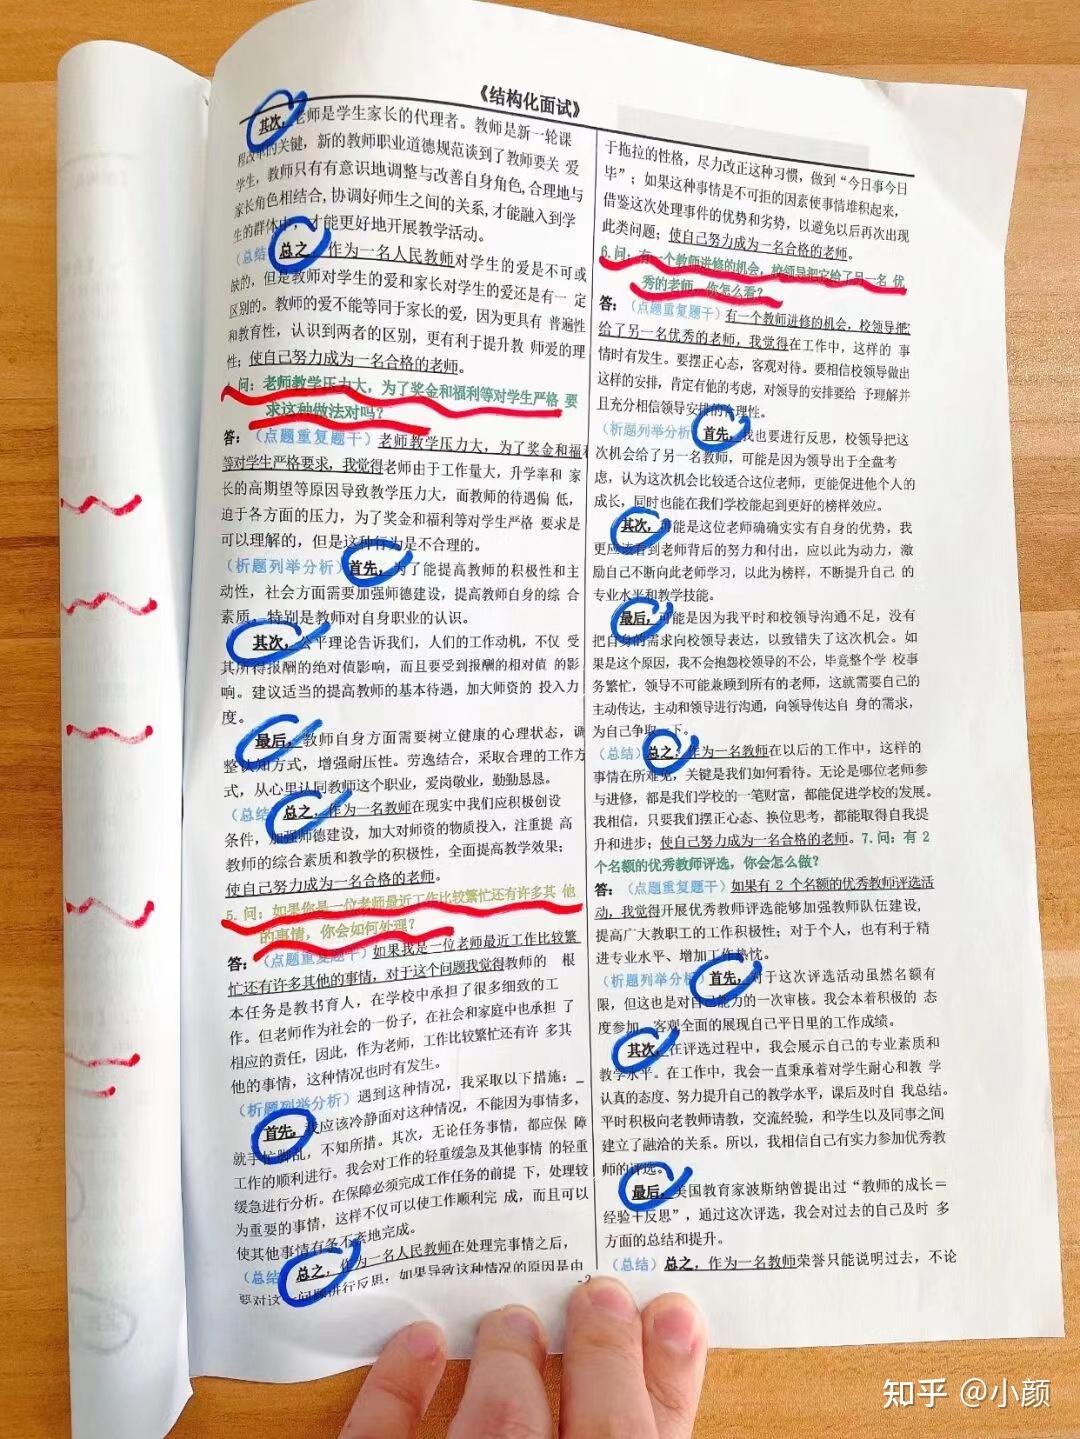 《结构化面试》
其次，老师是学生家长的代理者。教师是新一轮课
程改革的关键，新的教师职业道德规范谈到了教师要关 爱
学生，教师只有有意识地调整与改善自身角色,合理地与
家长角色相结合,协调好师生之间的关系,才能融入到学
生的群体中，才能更好地开展教学活动。
（总结）总之，作为一名人民教师对学生的爱是不可或
缺的，但是教师对学生的爱和家长对学生的爱还是有一 定
区别的。教师的爱不能等同于家长的爱，因为更具有 普遍性
和教育性，认识到两者的区别，更有利于提升教 师爱的理
性；使自己努力成为一名合格的老师。
问：老师教学压力大，为了奖金和福利等对学生严格 要
求这种做法对吗？
答：（点题重复题干）老师教学压力大，为了奖金和福利
等对学生严格要求，我觉得老师由于工作量大，升学率和 家
长的高期望等原因导致教学压力大，而教师的待遇偏 低，
迫于各方面的压力，为了奖金和福利等对学生严格 要求是
可以理解的，但是这种行为是不合理的。
（析题列举分析）首先，为了能提高教师的积极性和主
动性，社会方面需要加强师德建设，提高教师自身的综 合
素质，特别是教师对自身职业的认识。
其次，公平理论告诉我们，人们的工作动机，不仅 受
其所得报酬的绝对值影响，而且要受到报酬的相对值 的影
响。建议适当的提高教师的基本待遇，加大师资的 投入力
度。
最后，教师自身方面需要树立健康的心理状态，调
整认知方式，增强耐压性。劳逸结合，采取合理的工作方
式，从心里认同教师这个职业，爱岗敬业，勤勤恳恳。
（总结）总之，作为一名教师在现实中我们应积极创设
条件，加强师德建设，加大对师资的物质投入，注重提 高
教师的综合素质和教学的积极性，全面提高教学效果；
使自己努力成为一名合格的老师。
5.问：如果你是一位老师最近工作比较繁忙还有许多其 他
的事情，你会如何处理？
答：（点题重复题干）如果我是一位老师最近工作比较繁
忙还有许多其他的事情，对于这个问题我觉得教师的 根
本任务是教书育人，在学校中承担了很多细致的工
作。但老师作为社会的一份子，在社会和家庭中也承担 了
相应的责任，因此，作为老师，工作比较繁忙还有许 多其
他的事情，这种情况也时有发生。
（析题列举分析）遇到这种情况，我采取以下措施：
首先，我应该冷静面对这种情况，不能因为事情多，
就手忙脚乱，不知所措。其次，无论任务事情，都应保 障
工作的顺利进行。我会对工作的轻重缓急及其他事情 的轻重
缓急进行分析。在保障必须完成工作任务的前提 下，处理较
为重要的事情，这样不仅可以使工作顺利完 成，而且可以
使其他事情有条不紊地完成。
（总结）总之，作为一名人民教师在处理完事情之后，
要对这一问题进行反思；如果导致这种情况的原因是由
于拖拉的性格，尽力改正这种习惯，做到“今日事今日
毕”；如果这种事情是不可拒的因素使事情堆积起来，
借鉴这次处理事件的优势和劣势，以避免以后再次出现
此类问题；使自己努力成为一名合格的老师。
6.问：有一个教师进修的机会，校领导把它给了另一名 优
秀的老师，你怎么看？
答：（点题重复题干）有一个教师进修的机会，校领导把
给了另一名优秀的老师，我觉得在工作中，这样的 事
情时有发生。要摆正心态，客观对待。要相信校领导做出
这样的安排，肯定有他的考虑，对领导的安排要给 予理解并
且充分相信领导安排的合理性。
（析题列举分析）首先，我也要进行反思，校领导把这
次机会给了另一名教师，可能是因为领导出于全盘考
虑，认为这次机会比较适合这位老师，更能促进他个人的
成长，同时也能在我们学校能起到更好的榜样效应。
其次，可能是这位老师确确实实有自身的优势，我
更应该看到老师背后的努力和付出，应以此为动力，激
励自己不断向此老师学习，以此为榜样，不断提升自己 的
专业水平和教学技能。
最后，可能是因为我平时和校领导沟通不足，没有
把自身的需求向校领导表达，以致错失了这次机会。如
果是这个原因，我不会抱怨校领导的不公，毕竟整个学 校事
务繁忙，领导不可能兼顾到所有的老师，这就需要自己的
主动传达，主动和领导进行沟通，向领导传达自 身的需求，
为自己争取一下。
（总结）总之，作为一名教师在以后的工作中，这样的
事情在所难免，关键是我们如何看待。无论是哪位老师参
与进修，都是我们学校的一笔财富，都能促进学校的发展。
我相信，只要我们摆正心态、换位思考，都能取得自我提
升和进步；使自己努力成为一名合格的老师。7.问：有 2
个名额的优秀教师评选，你会怎么做？
答：（点题重复题干）如果有 2 个名额的优秀教师评选活
动，我觉得开展优秀教师评选能够加强教师队伍建设，
提高广大教职工的工作积极性；对于个人，也有利于精
进专业水平、增加工作热忱。
（析题列举分析）首先，对于这次评选活动虽然名额有
限，但这也是对自己能力的一次审核。我会本着积极的 态
度参加，客观全面的展现自己平日里的工作成绩。
其次，在评选过程中，我会展示自己的专业素质和
教学水平。在工作中，我会一直秉承着对学生耐心和教 学
认真的态度、努力提升自己的教学水平，课后及时自 我总结。
平时积极向老教师请教，交流经验，和学生以及同事之间
建立了融洽的关系。所以，我相信自己有实力参加优秀教
师的评选。
最后，美国教育家波斯纳曾提出过“教师的成长＝
经验＋反思”，通过这次评选，我会对过去的自己及时 多
方面的总结和提升。
（总结）总之，作为一名教师荣誉只能说明过去，不论
-2
知乎 @小颜